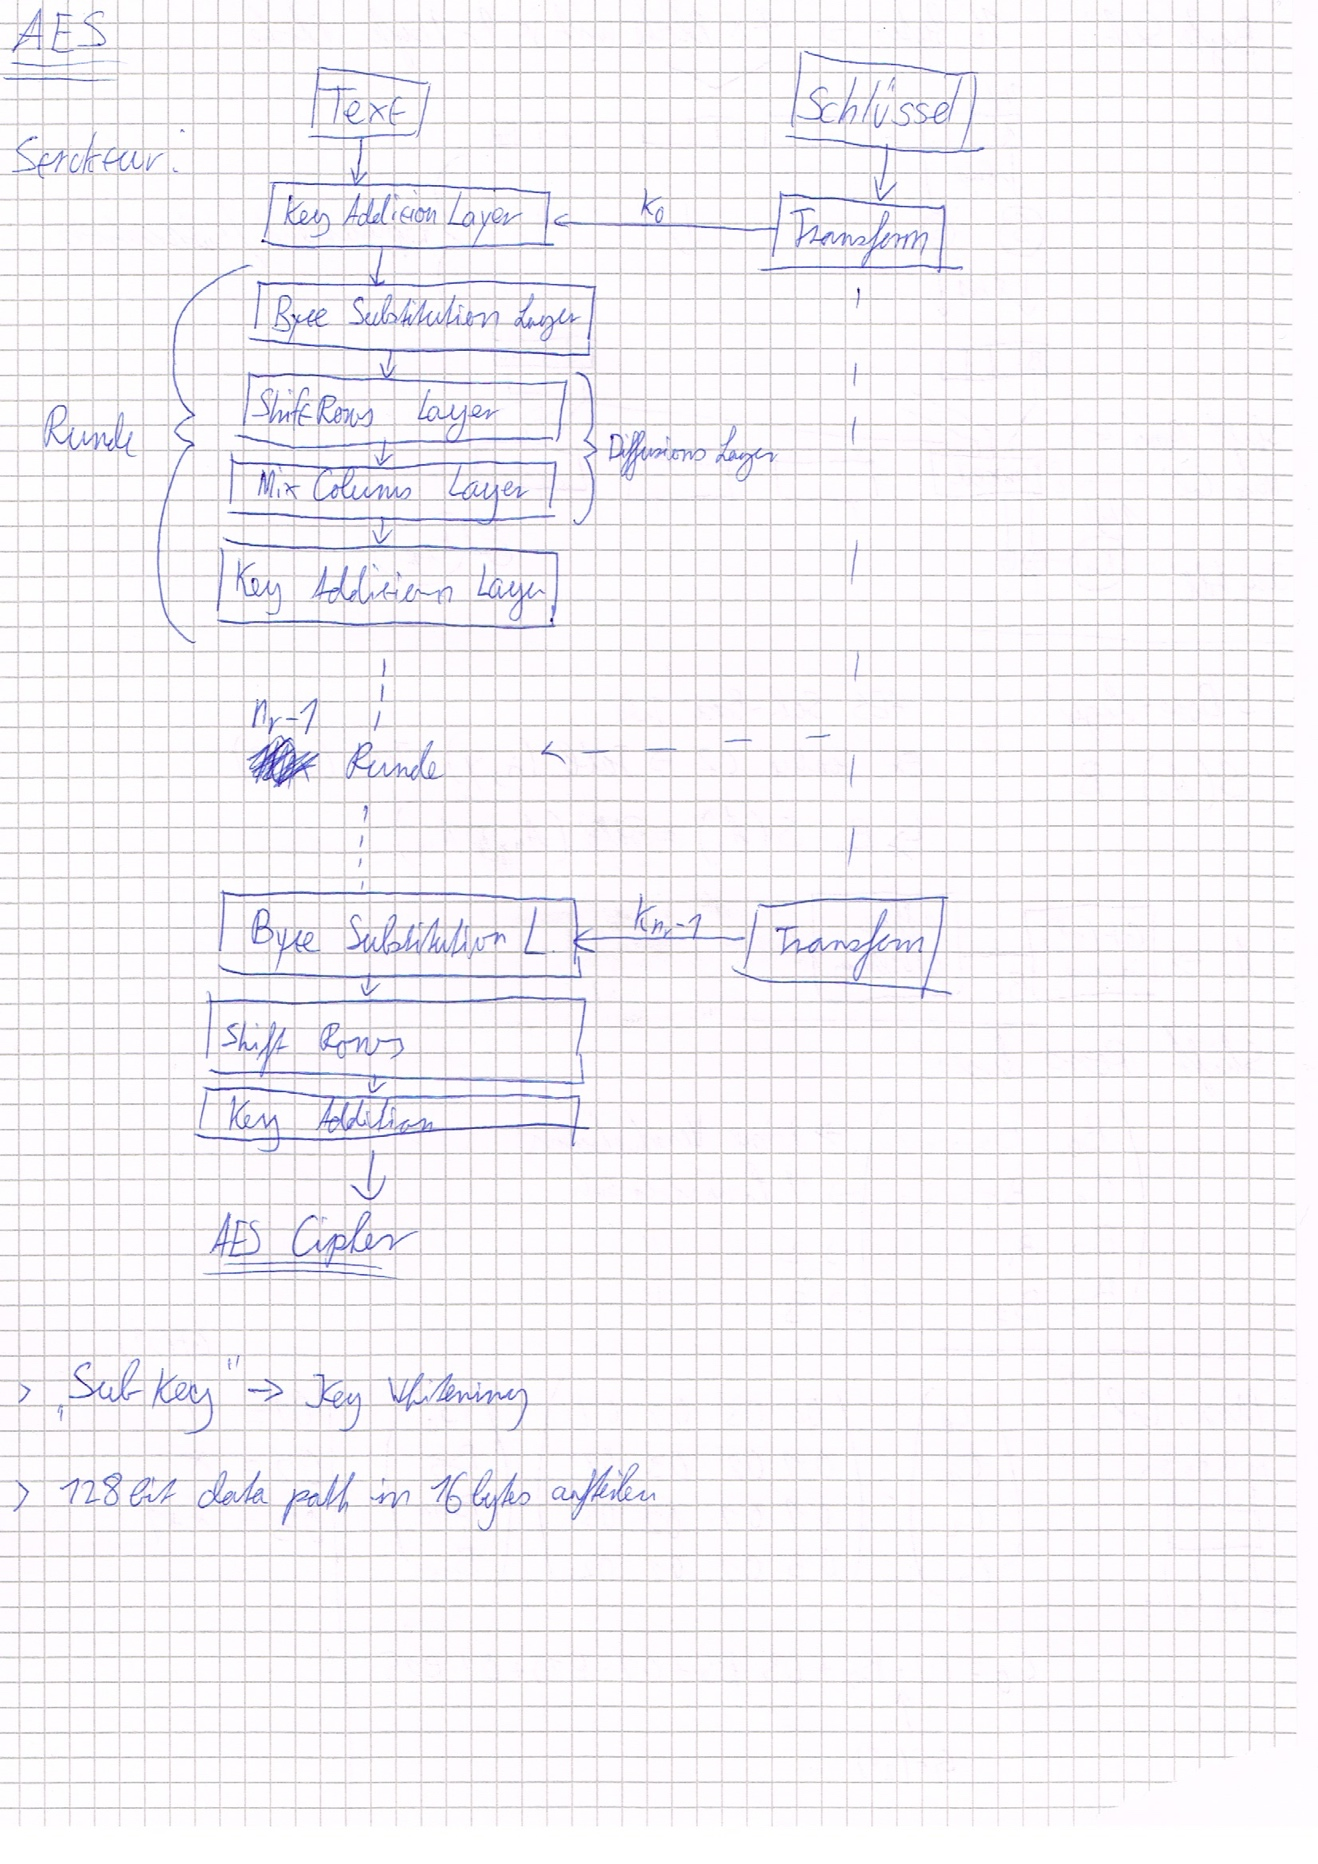 AES
Text
Schlüssel
Struktur:
Key Addition Layer
k0
Transform
Byte Substitution Layer
Shift Rows Layer
Runde
Diffusions Layer
Mix Colums Layer
Key Addition Layer
nr-1
Runde
Byte Substitution L.
Knr-1
Transform
Shift Rows
Key Addition
AES Cipher
> "Sub Key" → Key Whitening
> 128 bit data path in 16 bytes aufteilen